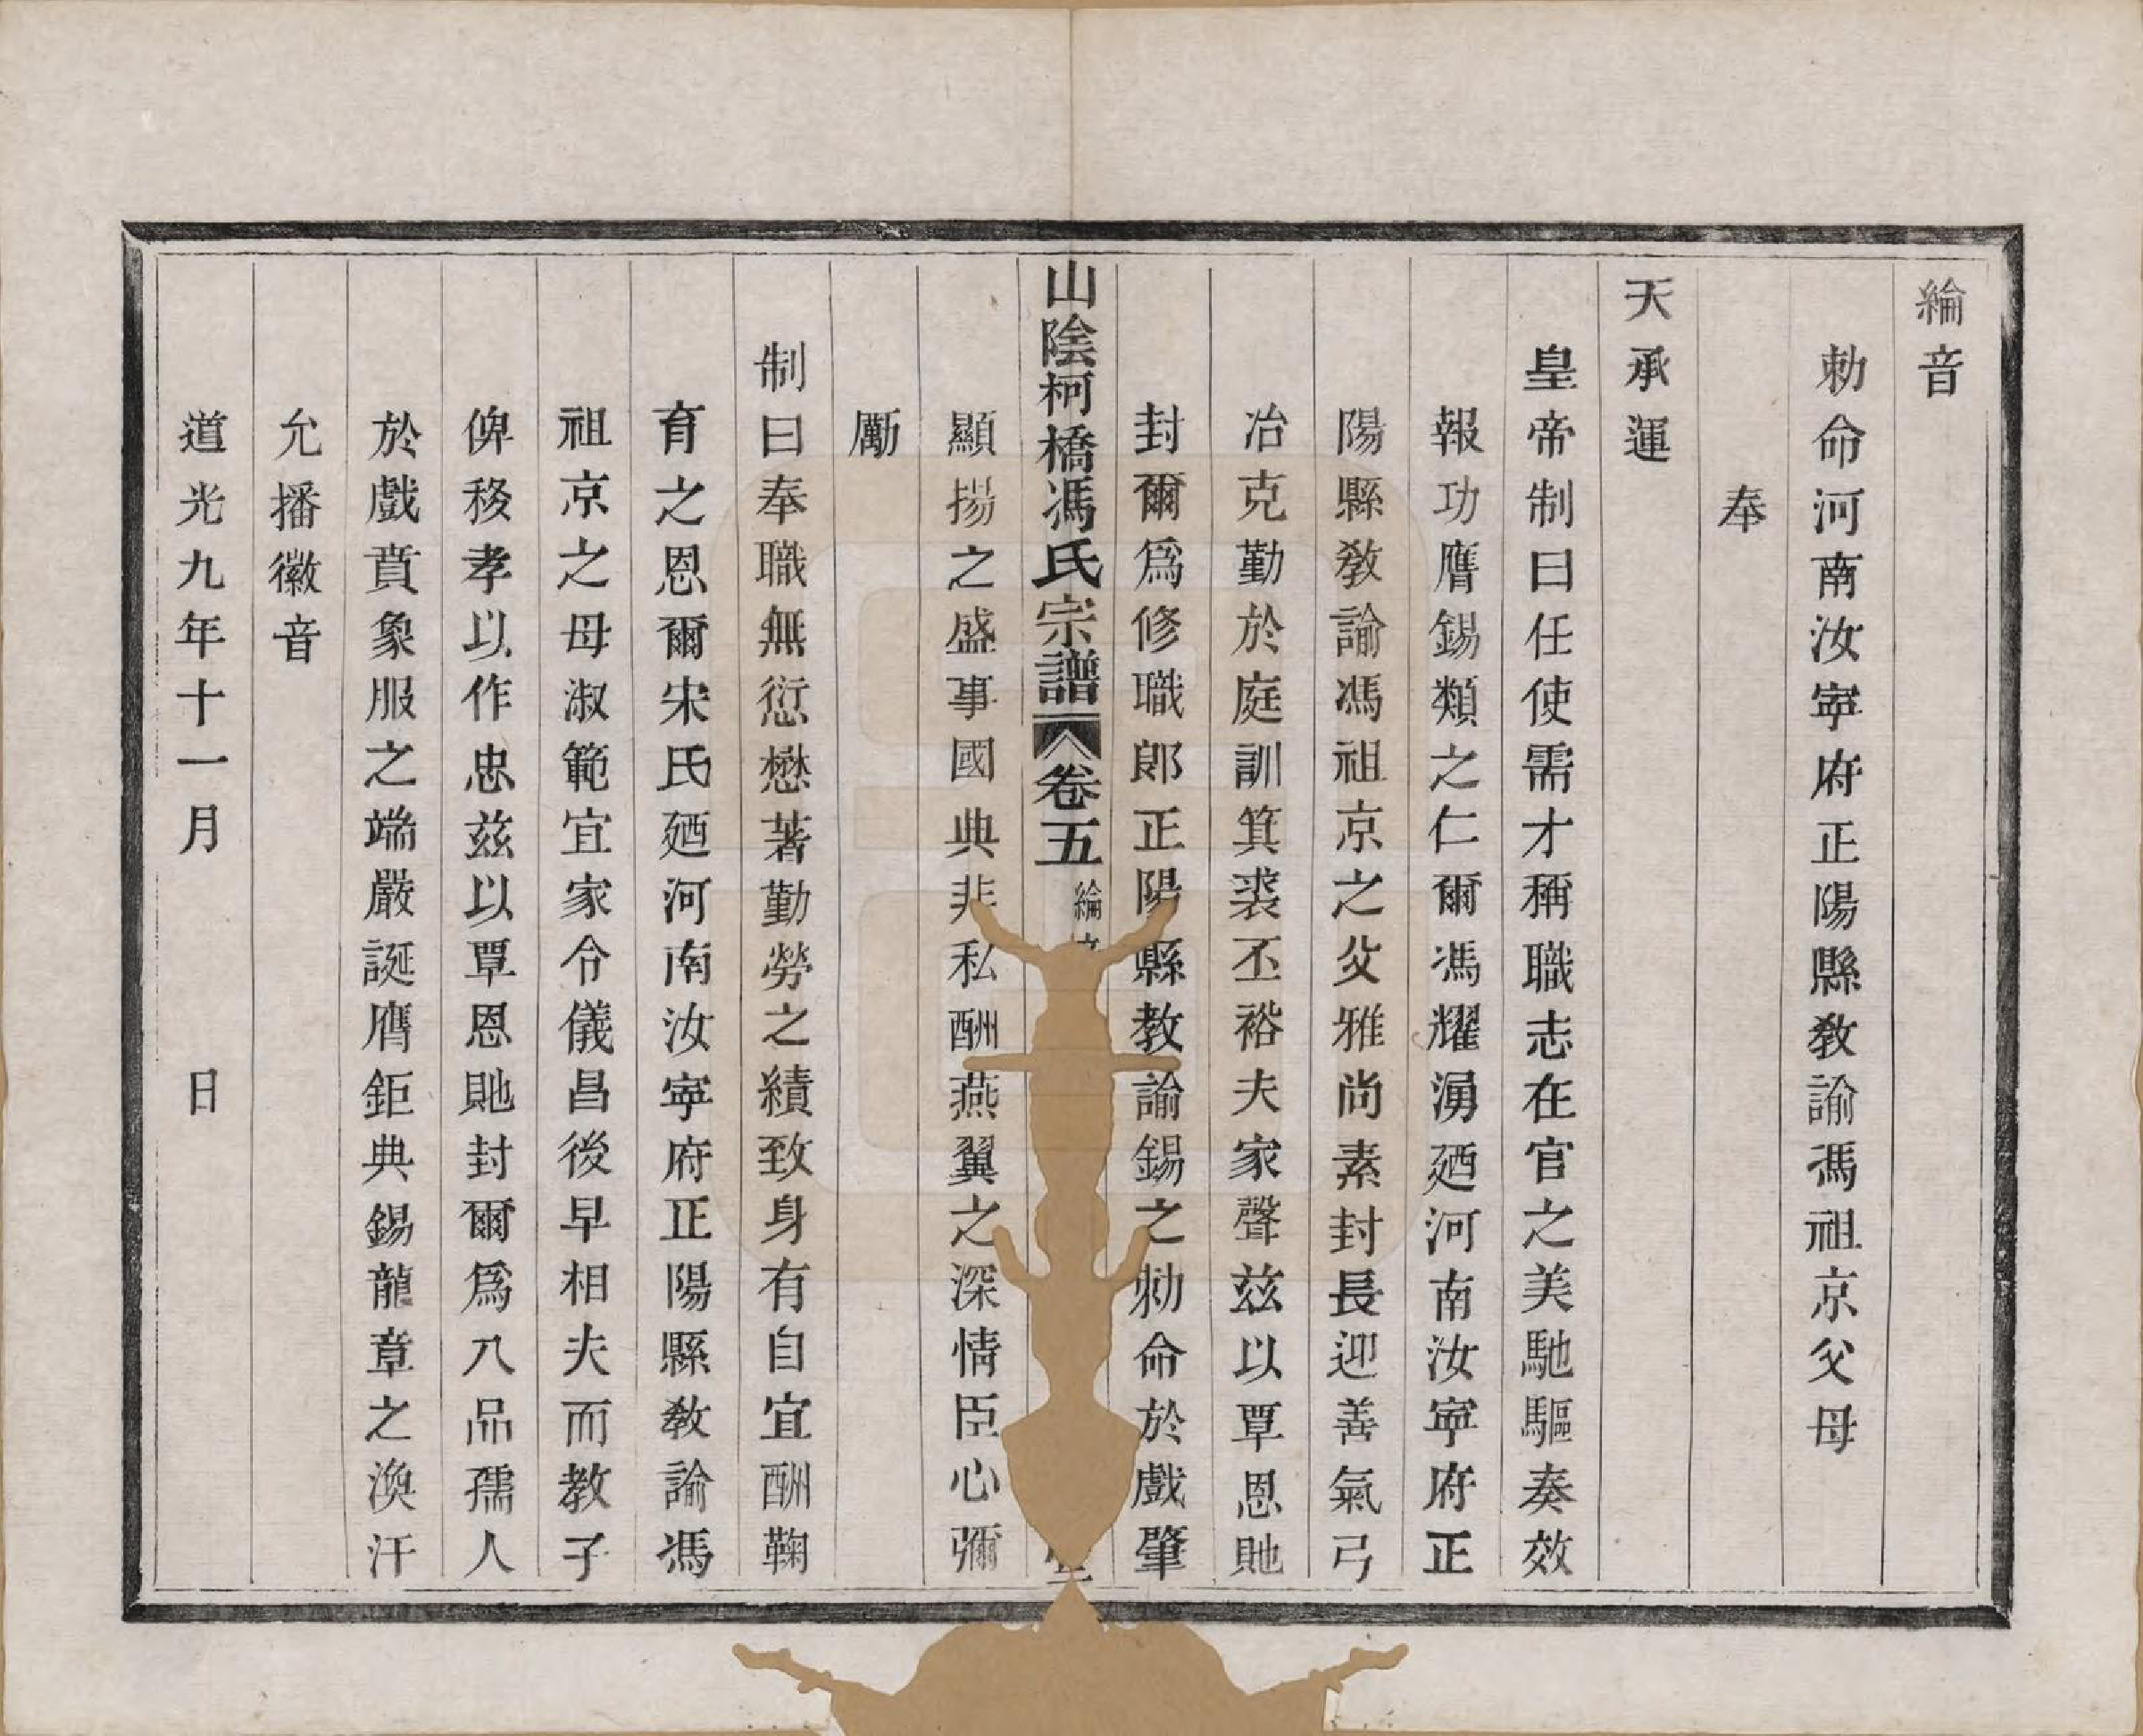 綸音
勅命河南汝寧府正陽縣教諭馮祖京父母
奉
天承運
皇帝制曰任使需才稱職志在官之美馳驅奏效
報功膺錫類之仁爾馮耀湧廼河南汝寧府正
陽縣教諭馮祖京之父雅尚素封長迎善氣弓
冶克勤於庭訓箕裘丕裕夫家聲茲以覃恩貤
封爾爲修職郎正陽縣教諭錫之勅命於戲肇
山陰柯橋馮氏宗譜 卷五 綸
顯揚之盛事國典非私酬燕翼之深情臣心彌
勵
制曰奉職無愆懋著勤勞之績致身有自宜酬鞠
育之恩爾宋氏廼河南汝寧府正陽縣教諭馮
祖京之母淑範宜家令儀昌後早相夫而教子
俾移孝以作忠茲以覃恩貤封爾爲八品孺人
於戲賁象服之端嚴誕膺鉅典錫龍章之渙汗
允播徽音
道光九年十一月 日